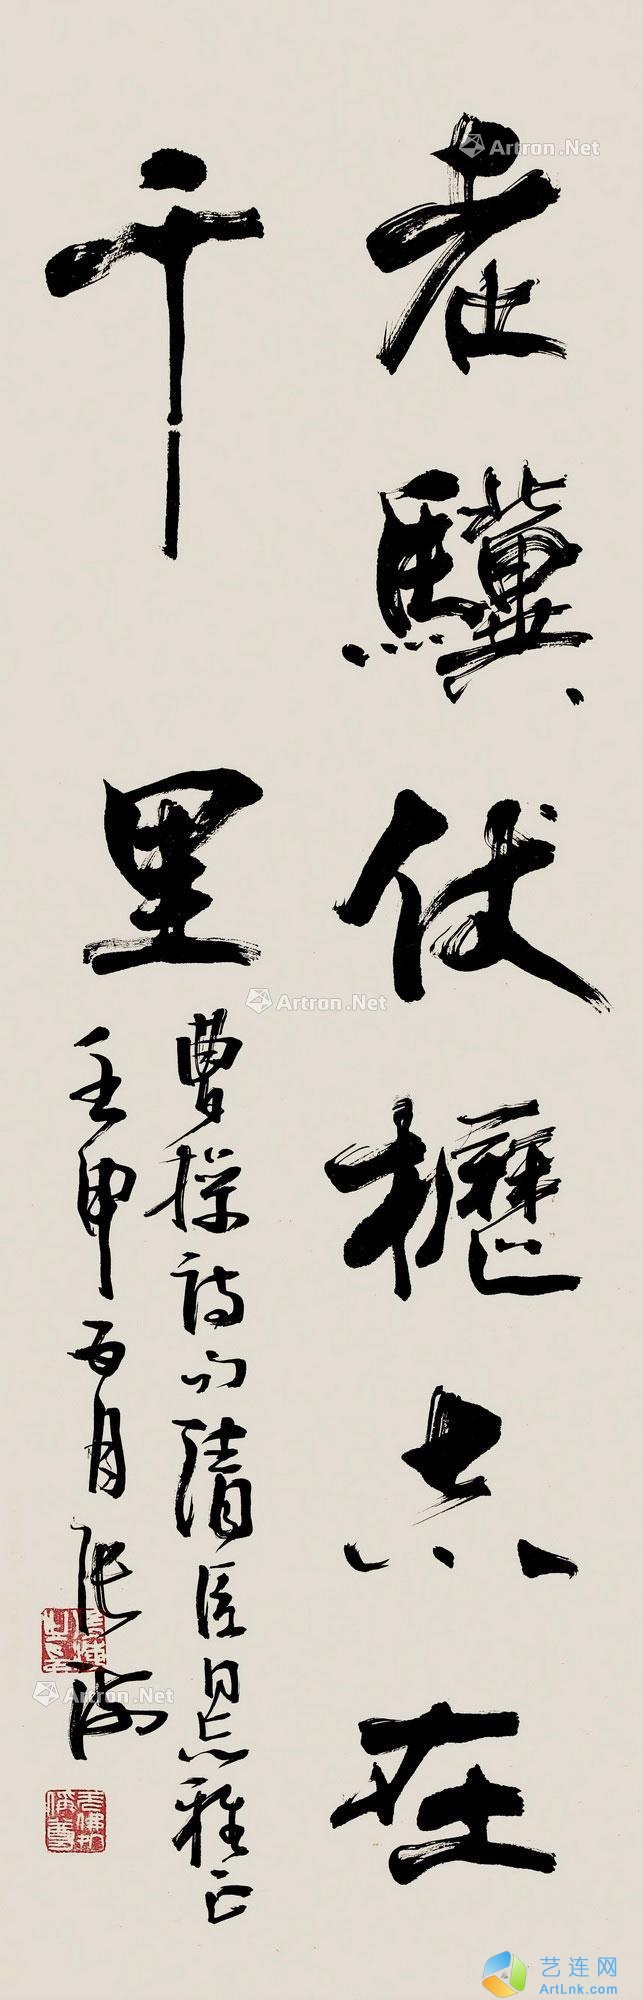 老驥伏櫪志在
千里
曹操詩句 隋臣同志雅正
壬申百月張海
Artron.Net
Artron.Net
Artron.Net
艺连网
ArtLnk.com